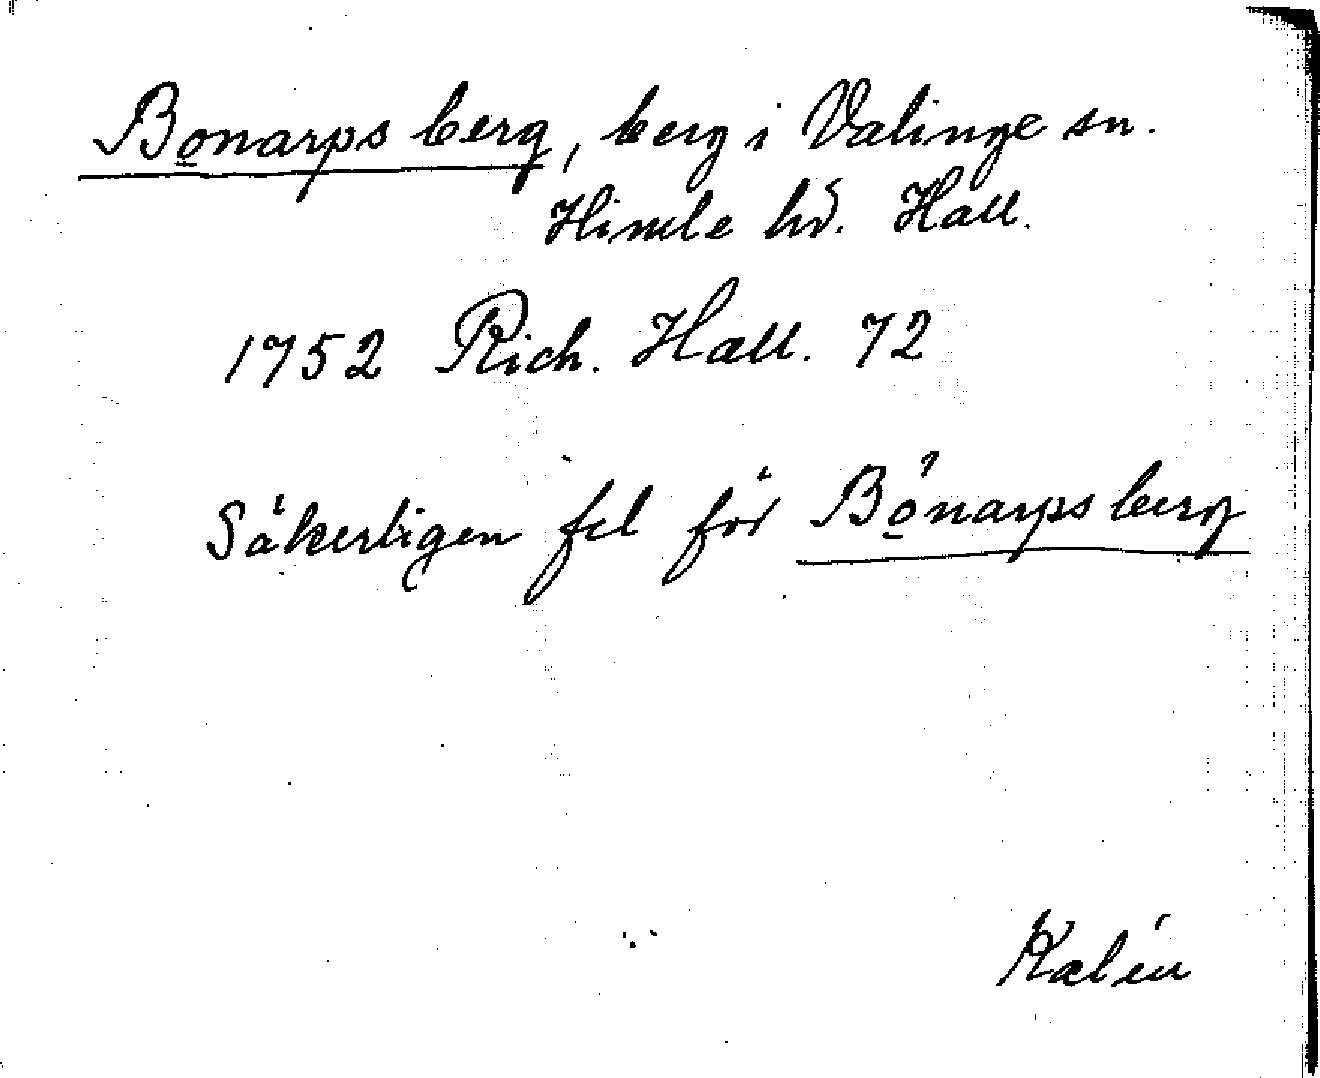 Bonarpsberg, berg i Valinge sn.
Himle hd. Hall.
1752 Rich. Hall. 72
Säkerligen fel för Bönarpsberg
Kalén